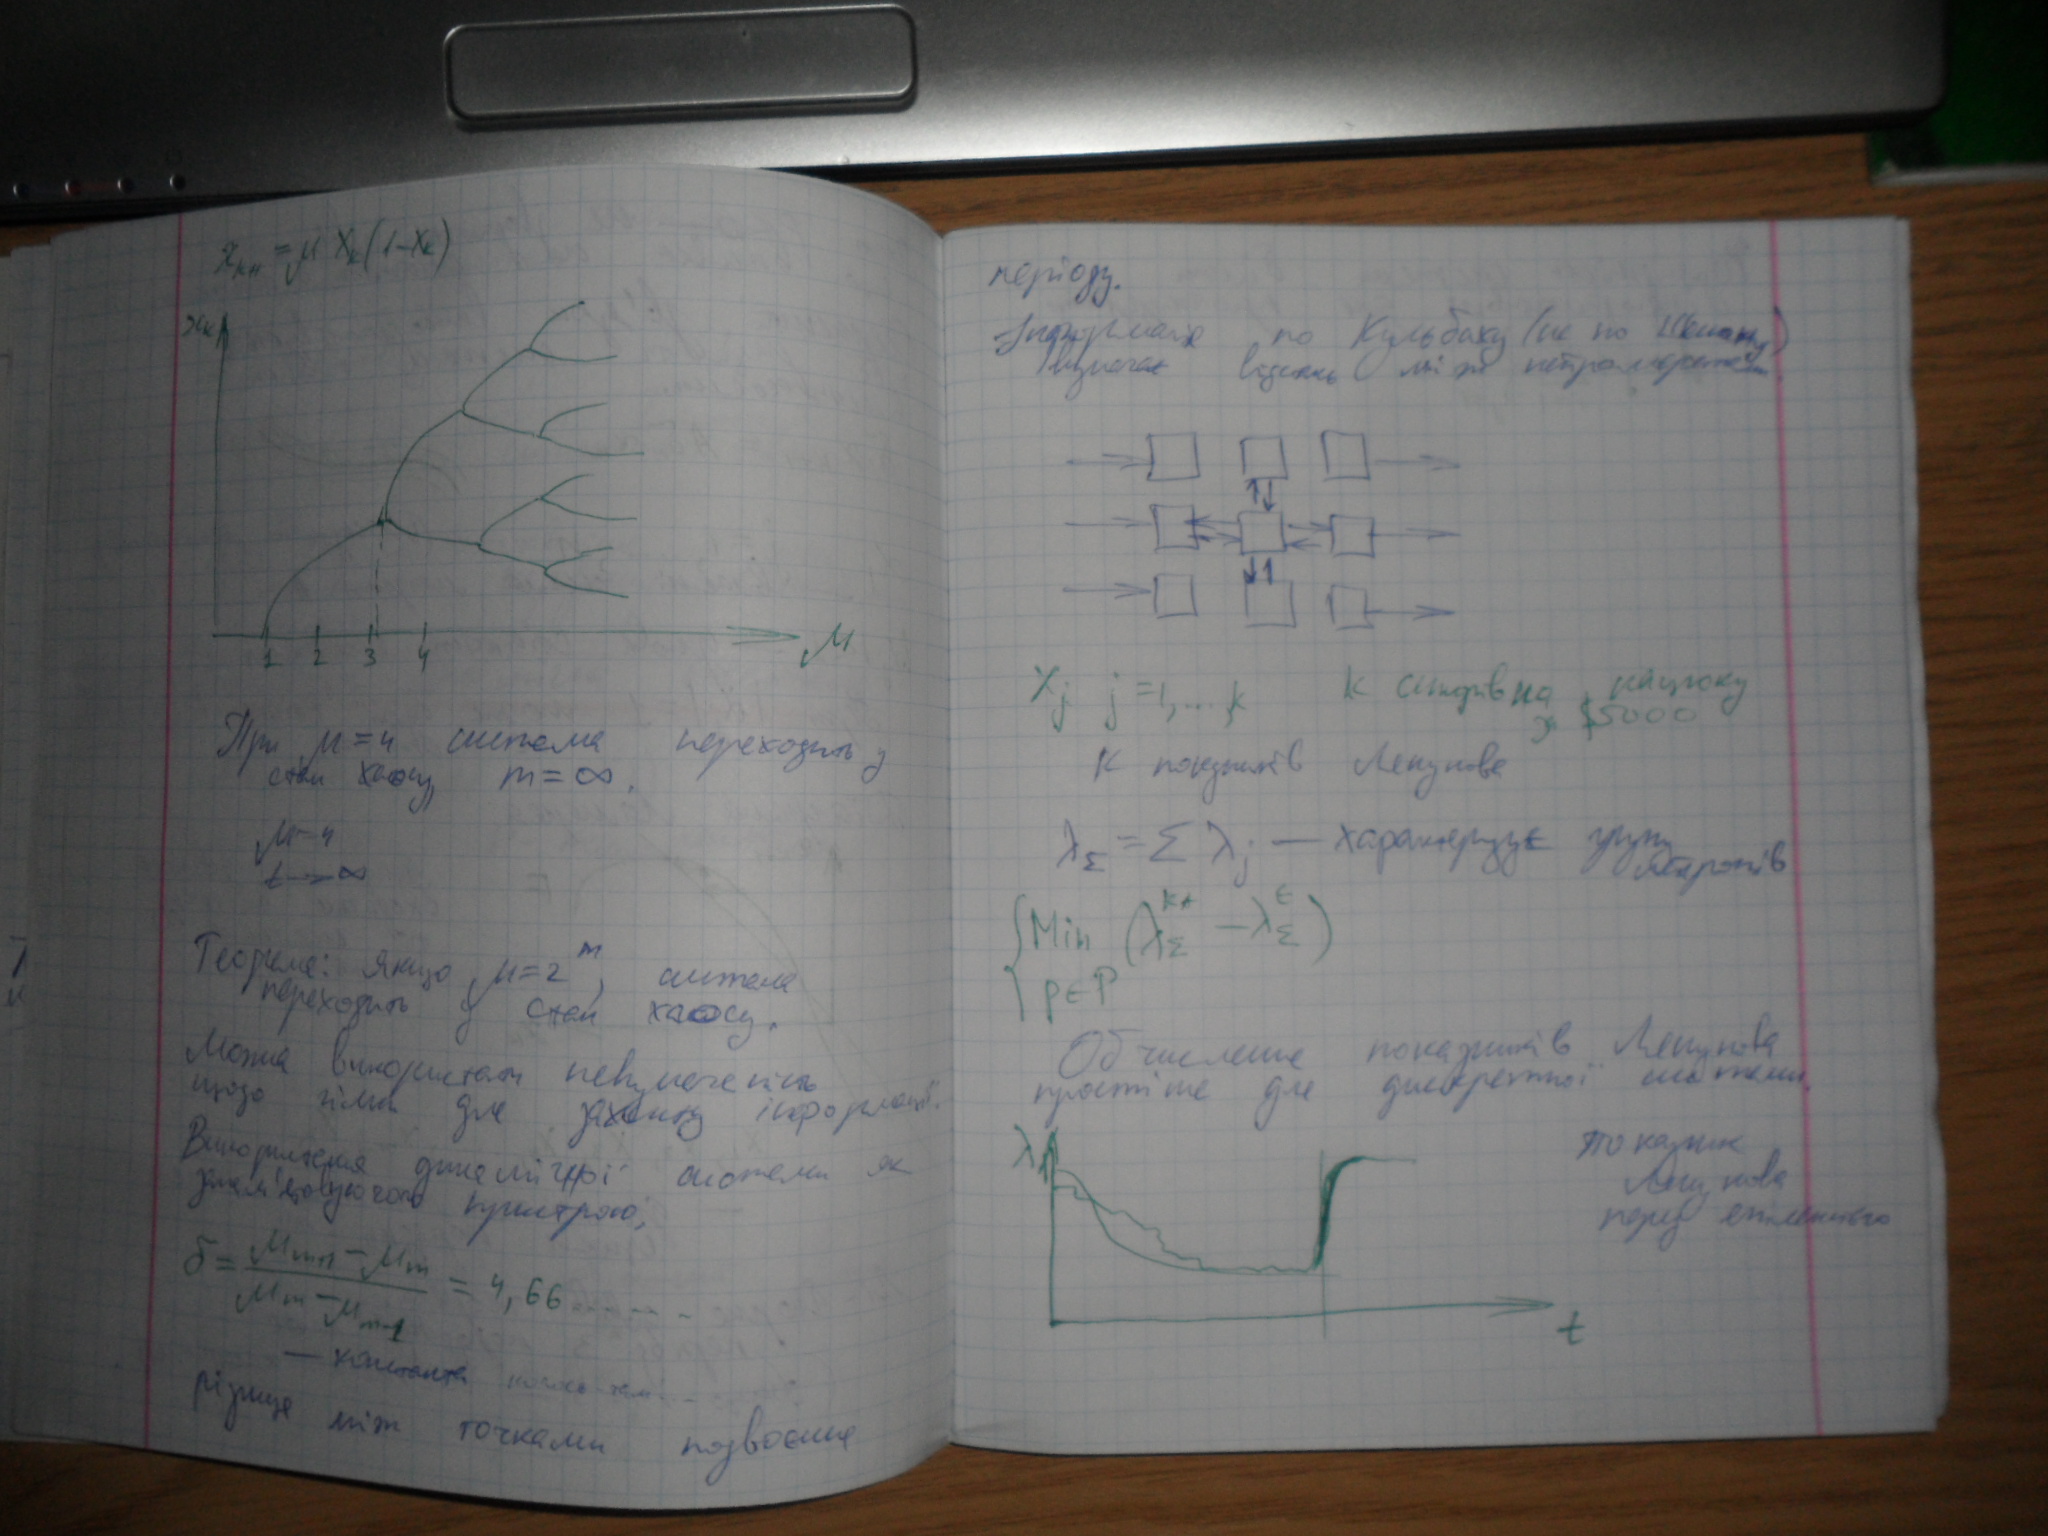 x_{k+1} = μ X_k (1 - X_k)
x_k
1 2 3 4 μ
При μ = 4 система переходить у
стан хаосу, m = ∞.
μ = 4
t → ∞
Теорема: якщо μ = 2^m, система
переходить у стан хаосу.
Можна використати невизначеність
щодо гілки для захисту інформації.
Використання динамічної системи як
запам'ятовуючого пристрою;
δ = (μ_{m+1} - μ_m) / (μ_m - μ_{m-1}) = 4,66......
— константа
різниця між точками подвоєння
періоду.
Інформація по Кульбаку (не по Шенону)
визначає відстань між нейромережами
X_j j = 1, ..., k k
$5000
k показників Ляпунова
λ_Σ = Σ λ_j — характеризує групу
нейронів
Min (λ_Σ^{k+} - λ_Σ^t)
p ∈ P
Обчислення показників Ляпунова
простіше для дискретної системи.
λ
показник
Ляпунова
перед
t